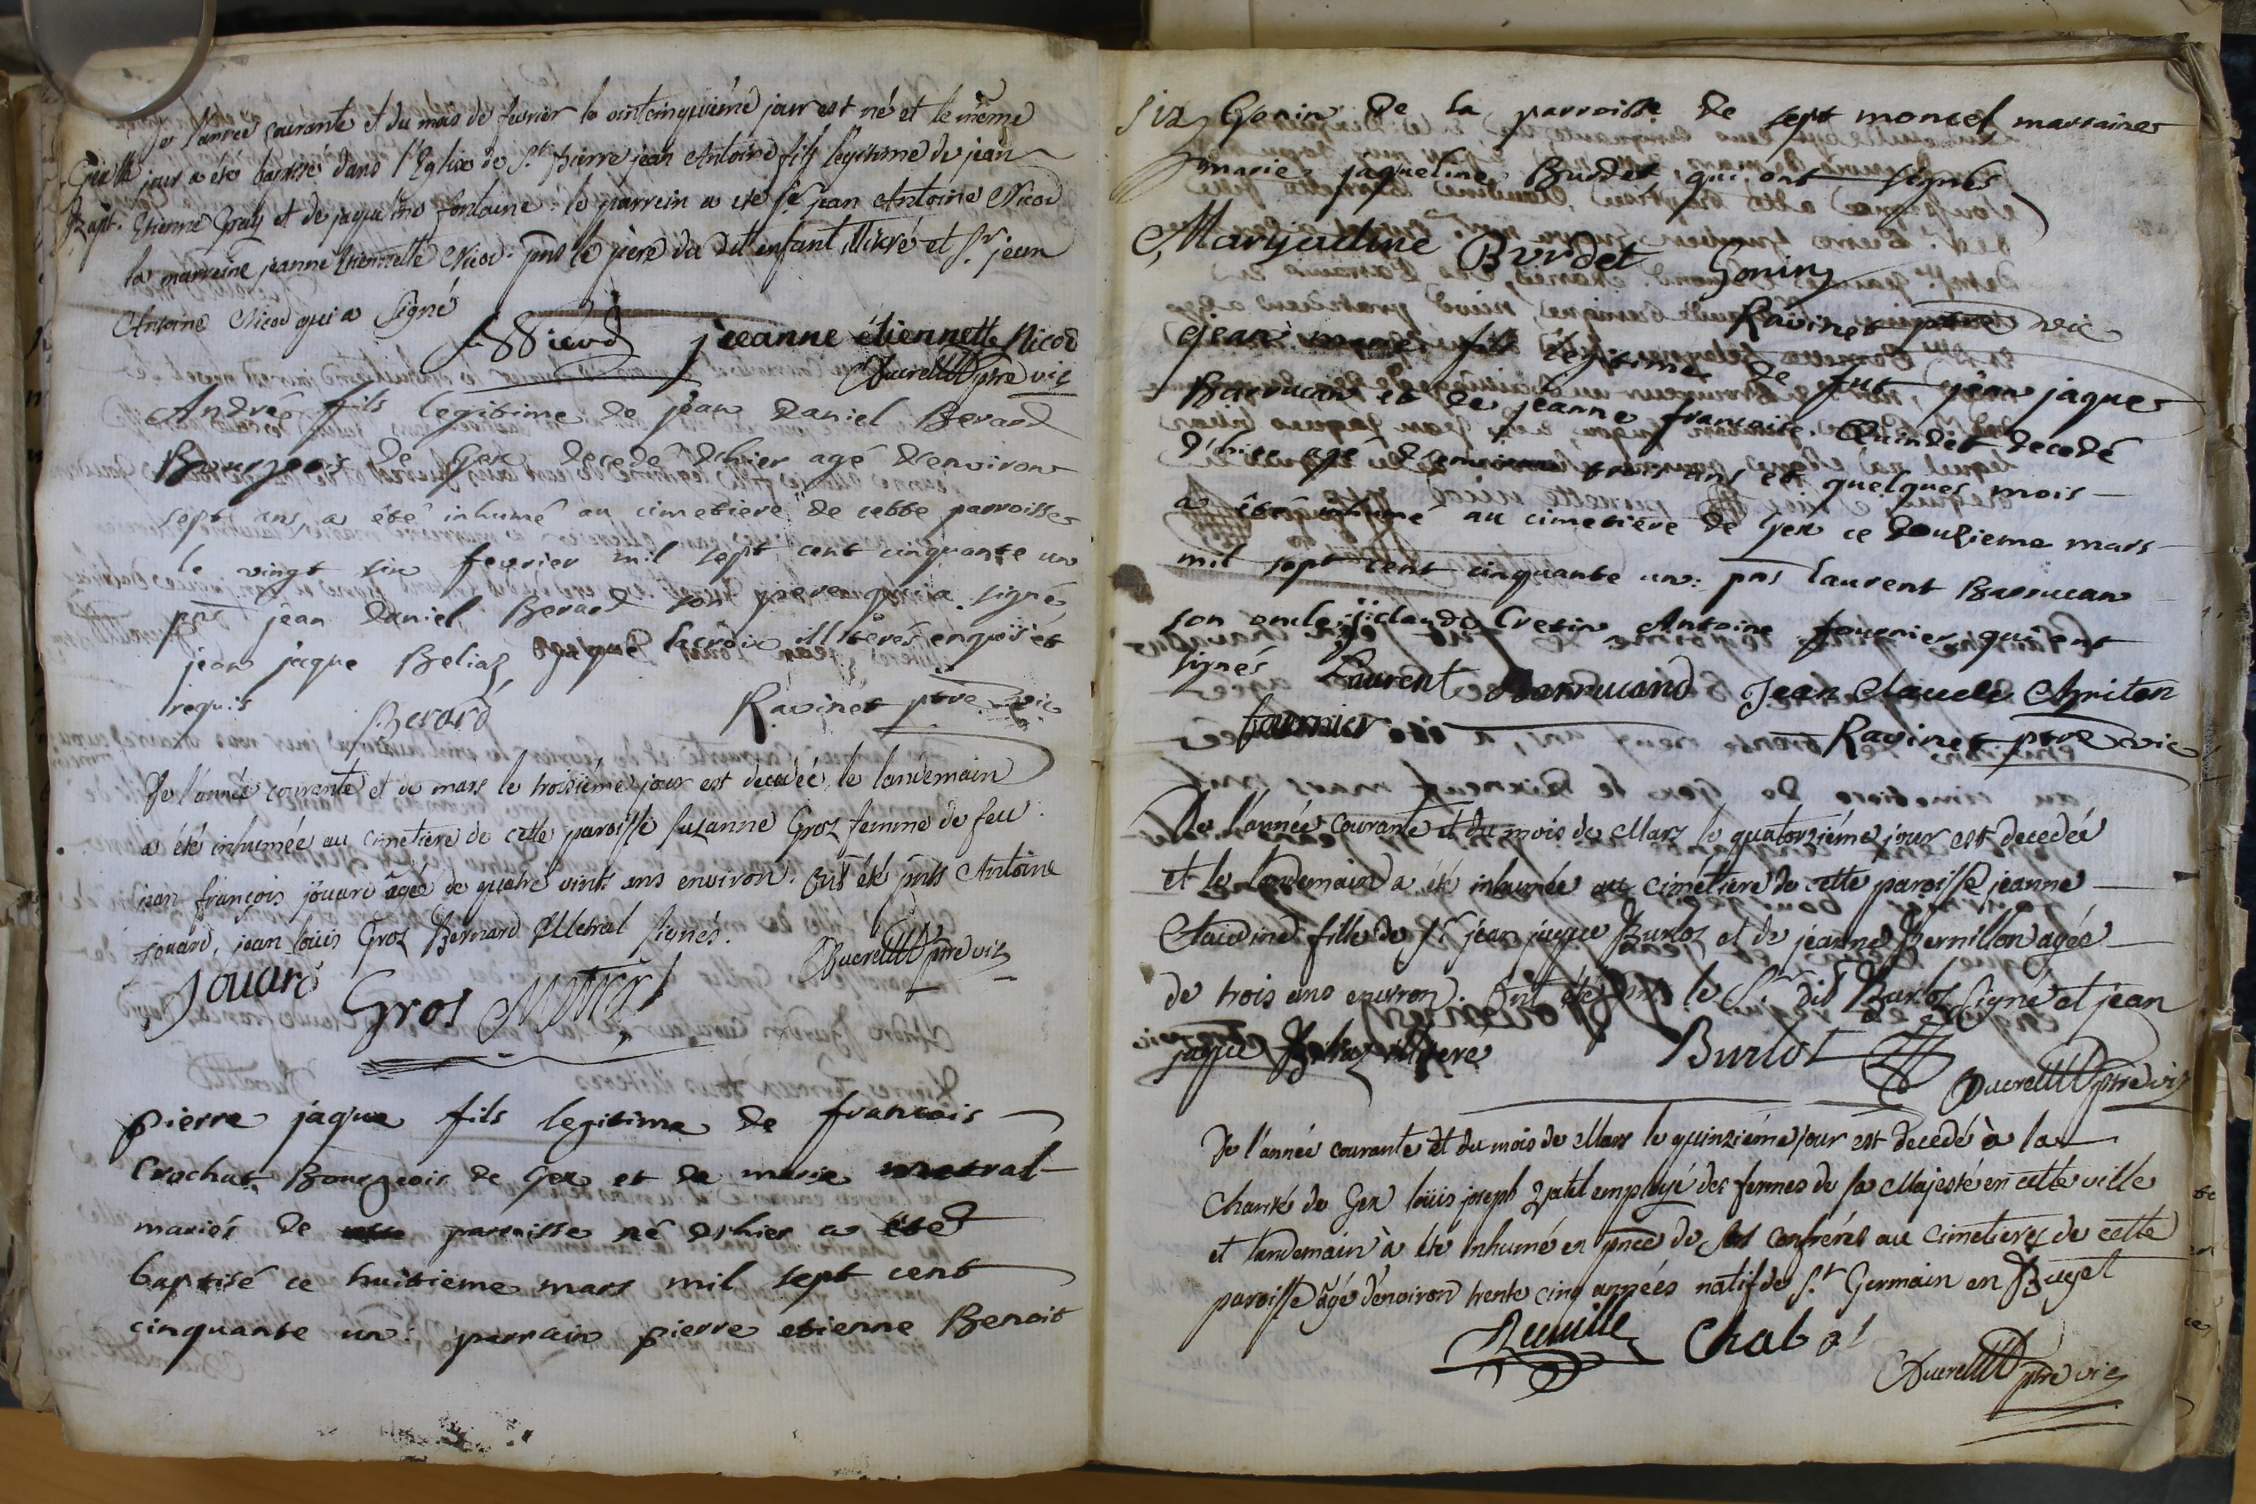 De l'année courante et du mois de fevrier le vintcinquiéme jour est né et le même
jour a été baptisé dans l'Eglise de St. Pierre jean Antoine fils legitime de jean
Bapt. Etienne et de jaqueline fontaine. le parrein a été Sr. jean Antoine Nicod
la marreine jeanne Etiennette Nicod. pnt le pere du dit enfant illitéré et Sr. jean
Antoine Nicod qui a signé
Nicod jeanne étiennette Nicod
Ducrett ptre vic
André fils legitime de jean Daniel Berard
Bourgeois de Gex decedé d'hier agé d'environ
sept ans, a été inhumé au cimetiere de cette parroisse
le vingt six fevrier mil sept cent cinquante un
pnt jean Daniel Berard son pere qui a signé,
jean jaque Beliaz, jaque lacroix illiterés enquis et
requis
Berard Ravinet ptre vic
De l'année courante et de mars le troisiéme jour est decedée, le landemain
a été inhumée au cimetiere de cette paroisse suzanne Groz femme de feu
jean françois jouard âgée de quatre vints ans environ. Ont été pnts Antoine
jouard, jean loüis Groz Bernard Metral signés.
Ducrett ptre vic
Jouard Gros Metral
pierre jaque fils legitime de francois
Crochat Bourgeois de Gex et de marie metral
mariés de parroisse né d'hier a été
baptisé ce huitieme mars mil sept cent
cinquante un: parrain pierre etienne Benoit
Six Gonin de la parroisse de sept moncel marraine
marie jaqueline Burdet qui ont signés
Maryacline Burdet Gonin
Ravinet ptre vic
jean marie fils legitime de fut jean jaque
Barrucan et de jeanne francoise Quindet decedé
d'hier agé d'environ trois ans et quelques mois
a été inhumé au cimetiere de Gex ce douzieme mars
mil sept cent cinquante un: pns laurent Barrucan
son oncle, j: claude Cretin Antoine fournier qui ont
signés Laurent Barrucand Jean Claude Chriten
fournier Ravinet ptre vic
De l'année courante et du mois de Mars le quatorziéme jour est decedée
et le landemain a été inhumée au cimetiere de cette paroisse jeanne
Claudine fille de Sr. jean jaque Burloz et de jeanne Bernillon agée
de trois ans environ. Ont été pnts le Sr. dit Burloz signé et jean
jaque Beliaz illiteré
Burlot
Ducrett ptre vic
De l'année courante et du mois de Mars le quinziéme jour est decedé à la
Charité de Gex loüis joseph employé des fermes de sa Majesté en cette ville
et landemain à été inhumé en pnce de ses confrérés au cimetiere de cette
paroisse âgé d'environ trente cinq années natif de St. Germain en Bugel
Chabot
Ducrett ptre vic